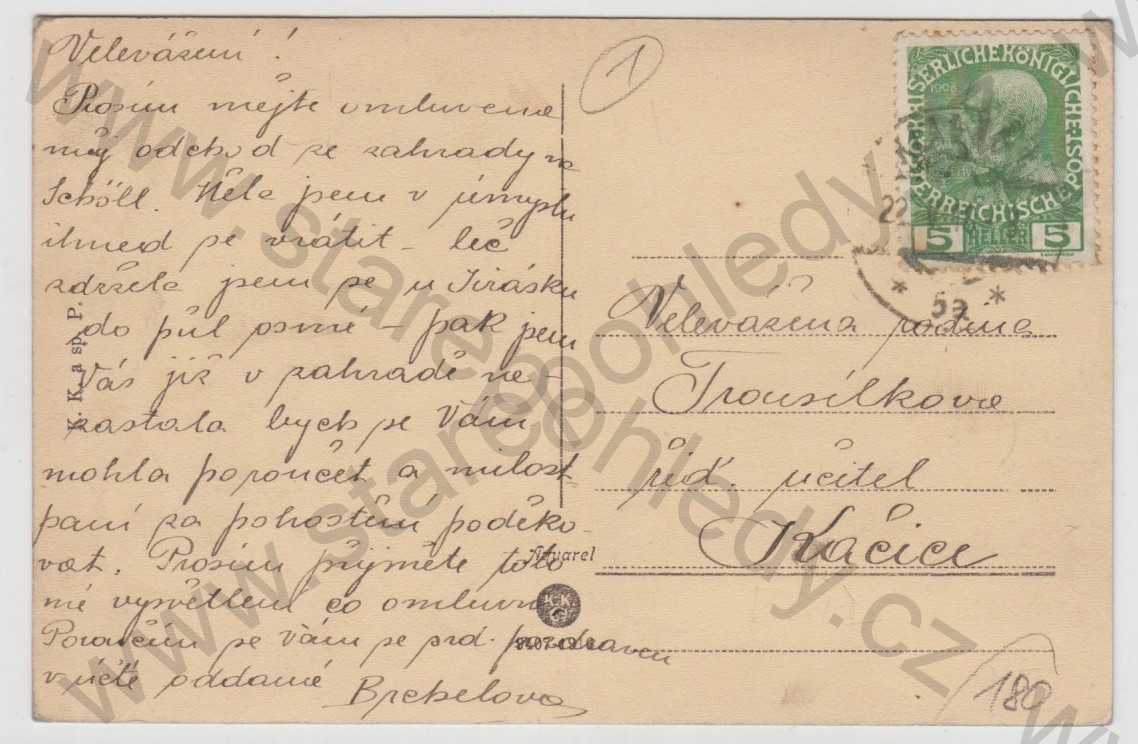 Velevážení!
Prosím mějte omluvene
můj odchod ze zahrady na
Schöll. Měla jsem v úmyslu
ihned se vrátit – leč
zdržela jsem se u Jirásku
do půl osmé – pak jsem
Vás již v zahradě ne-
zastala bych se Vám
mohla poroučet a milost
paní za pohoštění poděko-
vat. Prosím přijměte toto
mé vysvětlení co omluvu
Poroučím se Vám se srd. pozdravem
v úctě oddaná
K. K. a sp. P.
Akvarel
1
KAISERLICHEKÖNIGLICHE
ÖSTERREICHISCHE POST
1908
5 HELLER 5
22
* 5a *
Velevážená rodina
Trousílkova
říd. učitel
Kačice
180
www.starepohledy.cz
www.starepohledy.cz